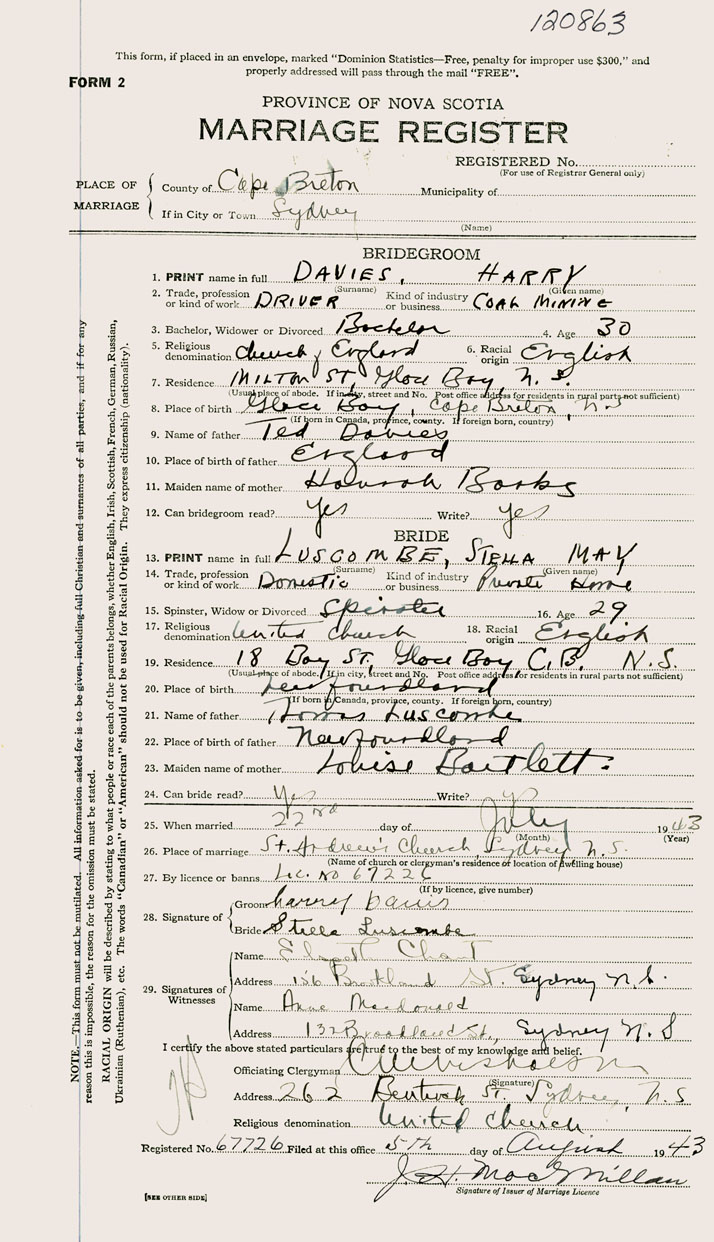 120863
This form, if placed in an envelope, marked "Dominion Statistics—Free, penalty for improper use $300," and
properly addressed will pass through the mail "FREE".
FORM 2
PROVINCE OF NOVA SCOTIA
MARRIAGE REGISTER
REGISTERED No.
(For use of Registrar General only)
PLACE OF MARRIAGE
County of Cape Breton Municipality of
If in City or Town Sydney
(Name)
BRIDEGROOM
1. PRINT name in full DAVIES, HARRY
(Surname) (Given name)
2. Trade, profession or kind of work DRIVER Kind of industry or business COAL MINING
3. Bachelor, Widower or Divorced Bachelor 4. Age 30
5. Religious denomination Church of England 6. Racial origin English
7. Residence MILTON ST, Glace Bay, N.S.
(Usual place of abode. If in city, street and No. Post office address for residents in rural parts not sufficient)
8. Place of birth Glace Bay, Cape Breton, N.S
(If born in Canada, province, county. If foreign born, country)
9. Name of father Ted Davies
10. Place of birth of father England
11. Maiden name of mother Hannah
12. Can bridegroom read? yes Write? yes
BRIDE
13. PRINT name in full LUSCOMBE, STELLA MAY
(Surname) (Given name)
14. Trade, profession or kind of work Domestic Kind of industry or business Private Home
15. Spinster, Widow or Divorced Spinster 16. Age 29
17. Religious denomination United Church 18. Racial origin English
19. Residence 18 Bay ST, Glace Bay C.B. N.S.
(Usual place of abode. If in city, street and No. Post office address for residents in rural parts not sufficient)
20. Place of birth Newfoundland
(If born in Canada, province, county. If foreign born, country)
21. Name of father Thomas Luscombe
22. Place of birth of father Newfoundland
23. Maiden name of mother Louise Bartlett.
24. Can bride read? Yes Write? yes
25. When married 22nd day of July 1943
(Month) (Year)
26. Place of marriage St. Andrew's Church, Sydney N.S.
(Name of church or clergyman's residence or location of dwelling house)
27. By licence or banns Lic. No 67226
(If by licence, give number)
28. Signature of
Groom Harry Davis
Bride Stella Luscombe
29. Signatures of Witnesses
Name Chant
Address 136 St. Sydney N.S.
Name Anne Macdonald
Address 132 St., Sydney N.S
I certify the above stated particulars are true to the best of my knowledge and belief.
Officiating Clergyman
(Signature)
Address 262 Bentinck ST. Sydney, N.S
Religious denomination United Church
Registered No. 67726 Filed at this office 5th day of August 1943
J. H. MacMillan
Signature of Issuer of Marriage Licence
[SEE OTHER SIDE]
NOTE.—This form must not be mutilated. All information asked for is to be given, including full Christian and surnames of all parties, and if for any
reason this is impossible, the reason for the omission must be stated.
RACIAL ORIGIN will be described by stating to what people or race each of the parents belongs, whether English, Irish, Scottish, French, German, Russian,
Ukrainian (Ruthenian), etc. The words "Canadian" or "American" should not be used for Racial Origin. They express citizenship (nationality).